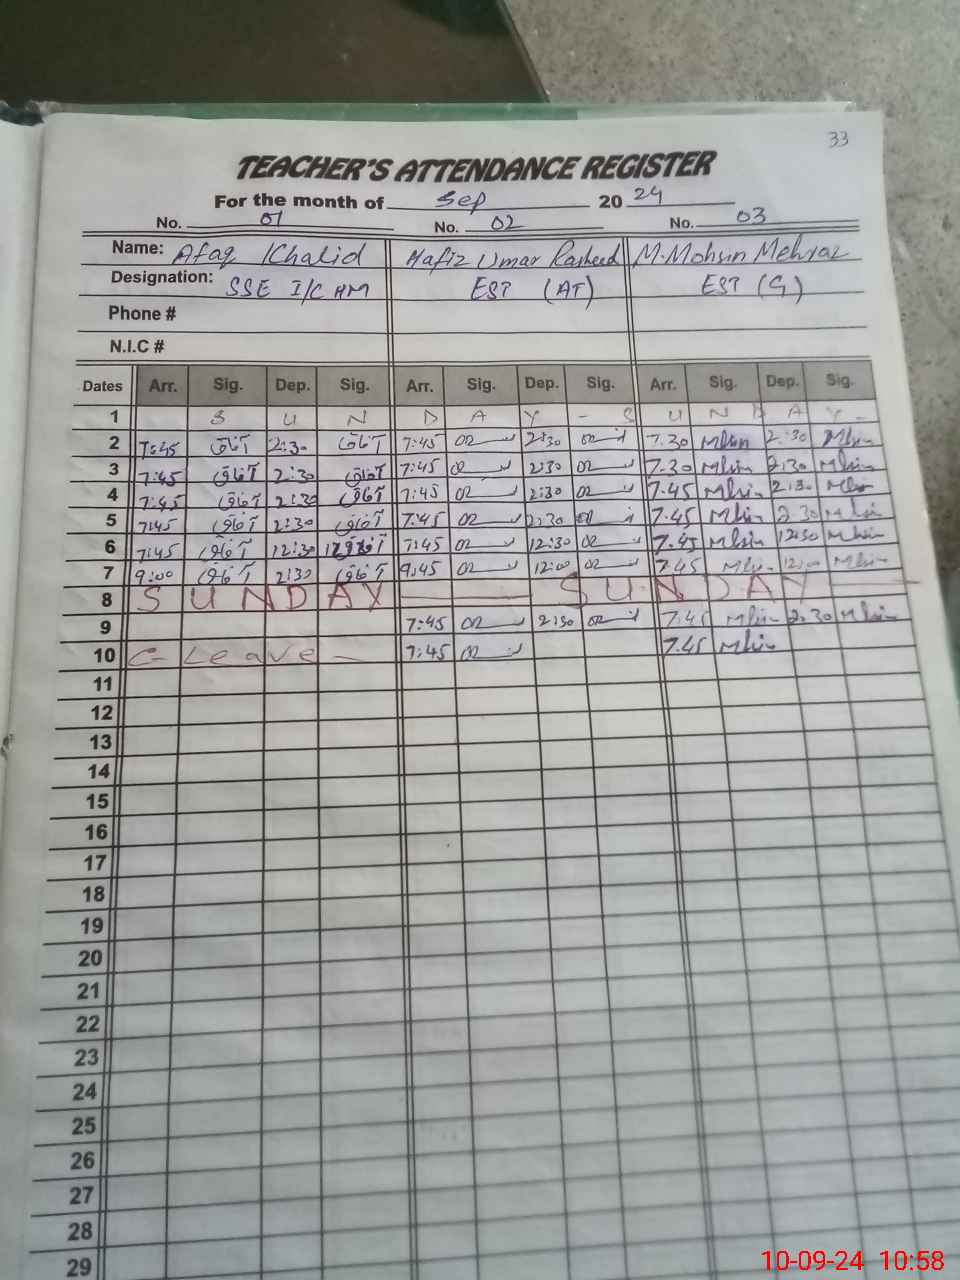 33
TEACHER'S ATTENDANCE REGISTER
For the month of Sep 20 24
No. 01 No. 02 No. 03
Name: Afaq Khalid Hafiz Umar Rasheed M. Mohsin Mehraz
Designation: SSE I/C HM EST (AT) EST (G)
Phone #
N.I.C #
Dates Arr. Sig. Dep. Sig. Arr. Sig. Dep. Sig. Arr. Sig. Dep. Sig.
1 S U N D A Y - S U N D A Y -
2 7:45 آفاق 2:30 آفاق 7:45 2:30 7.30 Mhsin 2:30 Mhsin
3 7:45 آفاق 2:30 آفاق 7:45 2:30 7.30 Mhsin 2:30 Mhsin
4 7:45 آفاق 2:30 آفاق 7:45 2:30 7.45 Mhsin 2:30 Mhsin
5 7:45 آفاق 2:30 آفاق 7:45 2:30 7.45 Mhsin 2.30 Mhsin
6 7:45 آفاق 12:30 آفاق 7:45 12:30 7.45 Mhsin 12:30 Mhsin
7 9:00 آفاق 2:30 آفاق 9:45 12:00 7.45 Mhsin 12:00 Mhsin
8 S U N D A Y S U N D A Y
9 7:45 2:30 7.45 Mhsin 2.30 Mhsin
10 C- Leave - 7:45 7.45 Mhsin
11
12
13
14
15
16
17
18
19
20
21
22
23
24
25
26
27
28
29
10-09-24 10:58